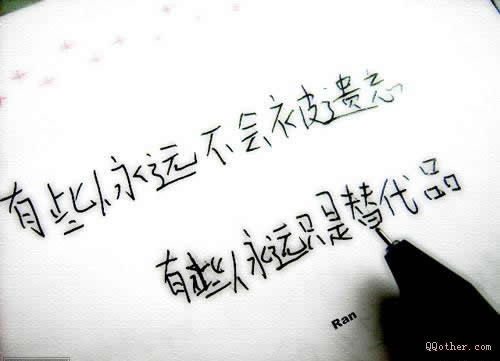 有些人永远不会被遗忘
有些人永远只是替代品
Ran
QQother.com